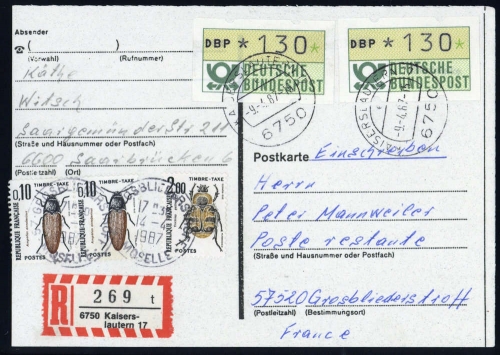 Absender
(Vorwahl) (Rufnummer)
Käthe
Witsch
Saargemünder Str 211
(Straße und Hausnummer oder Postfach)
6600 Saarbrücken 6
(Postleitzahl) (Ort)
DBP *130*
DEUTSCHE
BUNDESPOST
DBP *130*
DEUTSCHE
BUNDESPOST
-9.4.87
6750
KAISERSLAUTERN
-9.4.87
6750
Postkarte
Einschreiben
Herrn
Peter Mannweiler
Poste restante
(Straße und Hausnummer oder Postfach)
57520 Grosbliederstroff
(Postleitzahl) (Bestimmungsort)
France
0,10
TIMBRE-TAXE
RÉPUBLIQUE FRANÇAISE
POSTES
0,10
TIMBRE-TAXE
RÉPUBLIQUE FRANÇAISE
POSTES
TIMBRE-TAXE
POSTES
1987
MOSELLE
R
269 t
6750 Kaisers-
lautern 17